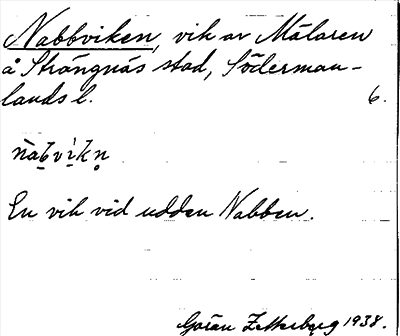 Nabbviken, vik av Mälaren
å Strängnäs stad, Söderman-
lands l. 6.
nàb̤vì̤kn̥
En vik vid udden Nabben.
Göran Zetterberg 1938.